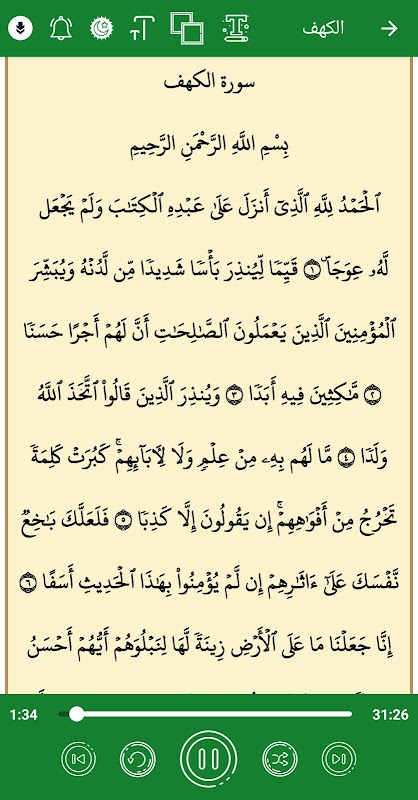 الكهف
سورة الكهف
بِسْمِ اللَّهِ الرَّحْمَنِ الرَّحِيمِ
ٱلۡحَمۡدُ لِلَّهِ ٱلَّذِيٓ أَنزَلَ عَلَىٰ عَبۡدِهِ ٱلۡكِتَٰبَ وَلَمۡ يَجۡعَل
لَّهُۥ عِوَجَاۜ ١ قَيِّمٗا لِّيُنذِرَ بَأۡسٗا شَدِيدٗا مِّن لَّدُنۡهُ وَيُبَشِّرَ
ٱلۡمُؤۡمِنِينَ ٱلَّذِينَ يَعۡمَلُونَ ٱلصَّٰلِحَٰتِ أَنَّ لَهُمۡ أَجۡرًا حَسَنٗا
٢ مَّٰكِثِينَ فِيهِ أَبَدٗا ٣ وَيُنذِرَ ٱلَّذِينَ قَالُواْ ٱتَّخَذَ ٱللَّهُ
وَلَدٗا ٤ مَّا لَهُم بِهِۦ مِنۡ عِلۡمٖ وَلَا لِأٓبَآئِهِمۡۚ كَبُرَتۡ كَلِمَةٗ
تَخۡرُجُ مِنۡ أَفۡوَٰهِهِمۡۚ إِن يَقُولُونَ إِلَّا كَذِبٗا ٥ فَلَعَلَّكَ بَٰخِعٞ
نَّفۡسَكَ عَلَىٰٓ ءَاثَٰرِهِمۡ إِن لَّمۡ يُؤۡمِنُواْ بِهَٰذَا ٱلۡحَدِيثِ أَسَفًا ٦
إِنَّا جَعَلۡنَا مَا عَلَى ٱلۡأَرۡضِ زِينَةٗ لَّهَا لِنَبۡلُوَهُمۡ أَيُّهُمۡ أَحۡسَنُ
1:34
31:26